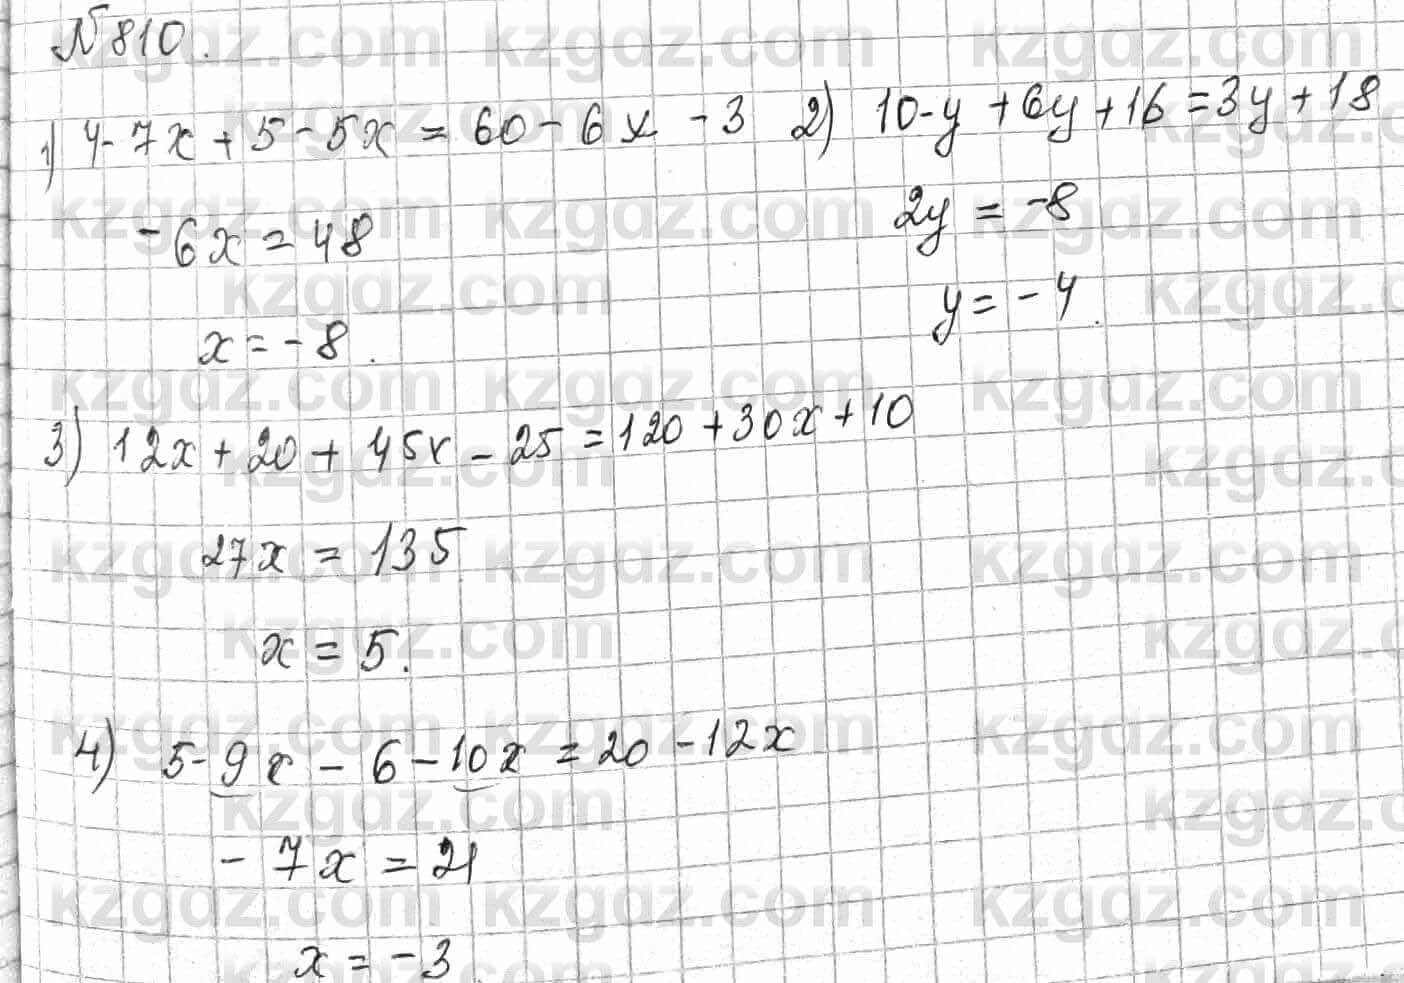 № 810.
1) 4-7x+5-5x=60-6x-3
-6x=48
x=-8.
2) 10-y+6y+16=3y+18
2y=-8
y=-4.
3) 12x+20+45x-25=120+30x+10
27x=135
x=5.
4) 5-9x-6-10x=20-12x
-7x=21
x=-3
kzgdz.com